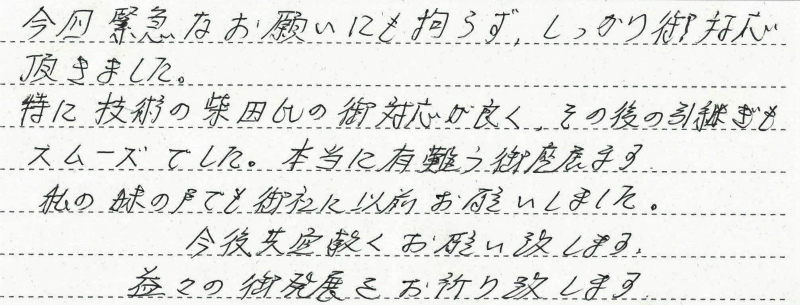 今回緊急なお願いにも拘らず、しっかり御対応
頂きました。
特に技術の柴田氏の御対応が良く、その後の引継ぎも
スムーズでした。本当に有難う御座居ます
私の妹の戸でも御社に以前お願いしました。
今後共宜敷くお願い致します。
益々の御発展をお祈り致します